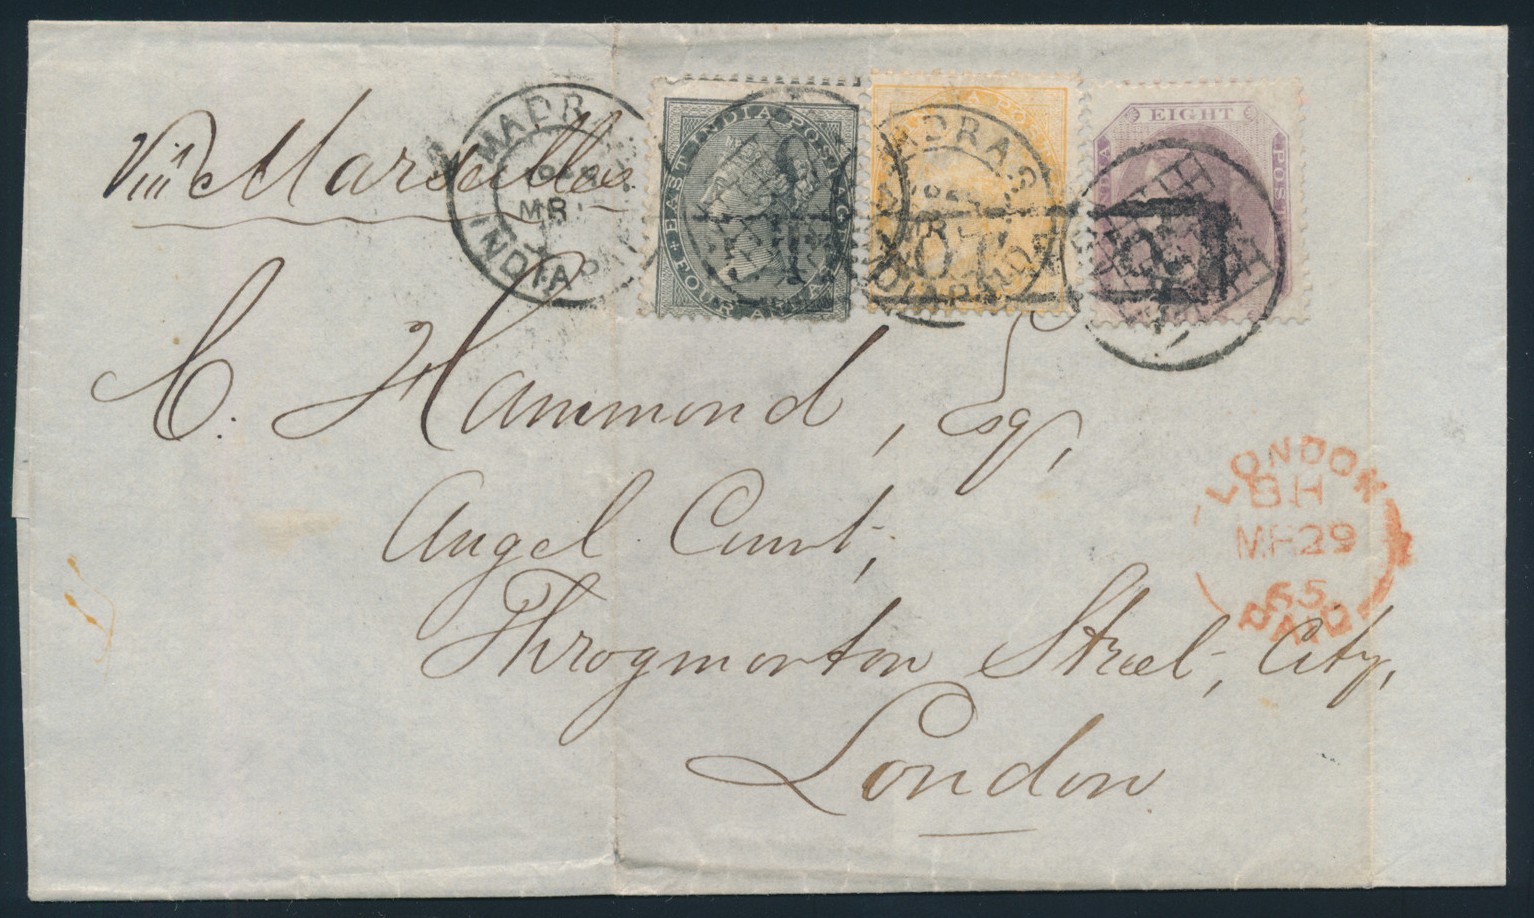 Via Marseilles
MADRAS
MR
INDIA PAID
EAST INDIA POSTAGE
FOUR ANNAS
MADRAS
MR
INDIA PAID
EIGHT
C. Hammond, Esq,
Angel Court,
Throgmorton Street, City,
London
LONDON
BH
MR 29
65
PAID